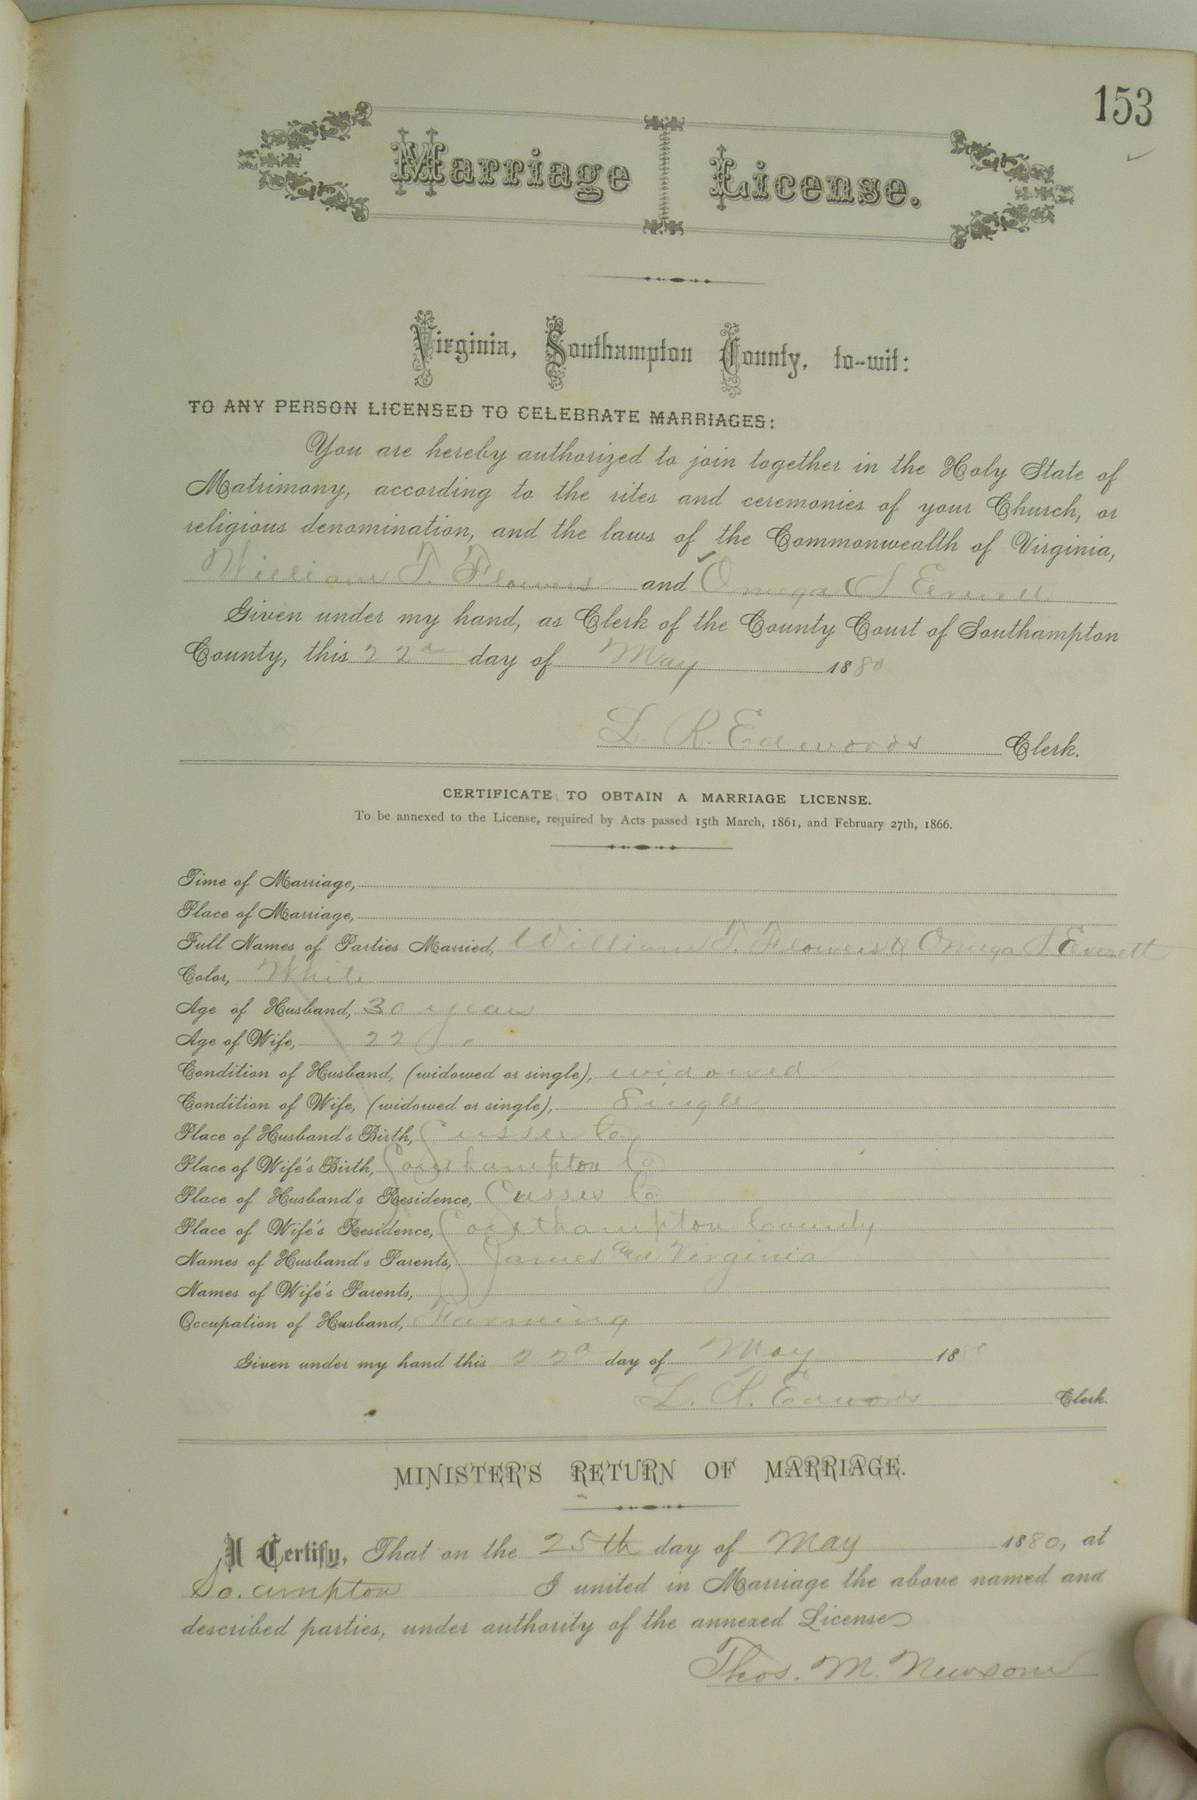 153
Marriage License.
Virginia, Southampton County, to-wit:
TO ANY PERSON LICENSED TO CELEBRATE MARRIAGES:
You are hereby authorized to join together in the Holy State of
Matrimony, according to the rites and ceremonies of your Church, or
religious denomination, and the laws of the Commonwealth of Virginia,
William T. Flowers and Omega S Everett
Given under my hand, as Clerk of the County Court of Southampton
County, this 22d day of May 1880
L. R. Edwards Clerk.
CERTIFICATE TO OBTAIN A MARRIAGE LICENSE.
To be annexed to the License, required by Acts passed 15th March, 1861, and February 27th, 1866.
Time of Marriage,
Place of Marriage,
Full Names of Parties Married, William T. Flowers & Omega S Everett
Color, White
Age of Husband, 30 years
Age of Wife, 22 "
Condition of Husband, (widowed or single), widowed
Condition of Wife, (widowed or single), Single
Place of Husband's Birth, Sussex Co
Place of Wife's Birth, Southampton Co
Place of Husband's Residence, Sussex Co
Place of Wife's Residence, Southampton County
Names of Husband's Parents, James and Virginia
Names of Wife's Parents,
Occupation of Husband, Farming
Given under my hand this 22d day of May 1880
L. R. Edwards Clerk.
MINISTER'S RETURN OF MARRIAGE.
I Certify, That on the 25th day of May 1880, at
So. ampton I united in Marriage the above named and
described parties, under authority of the annexed License
Thos. M. Newsom